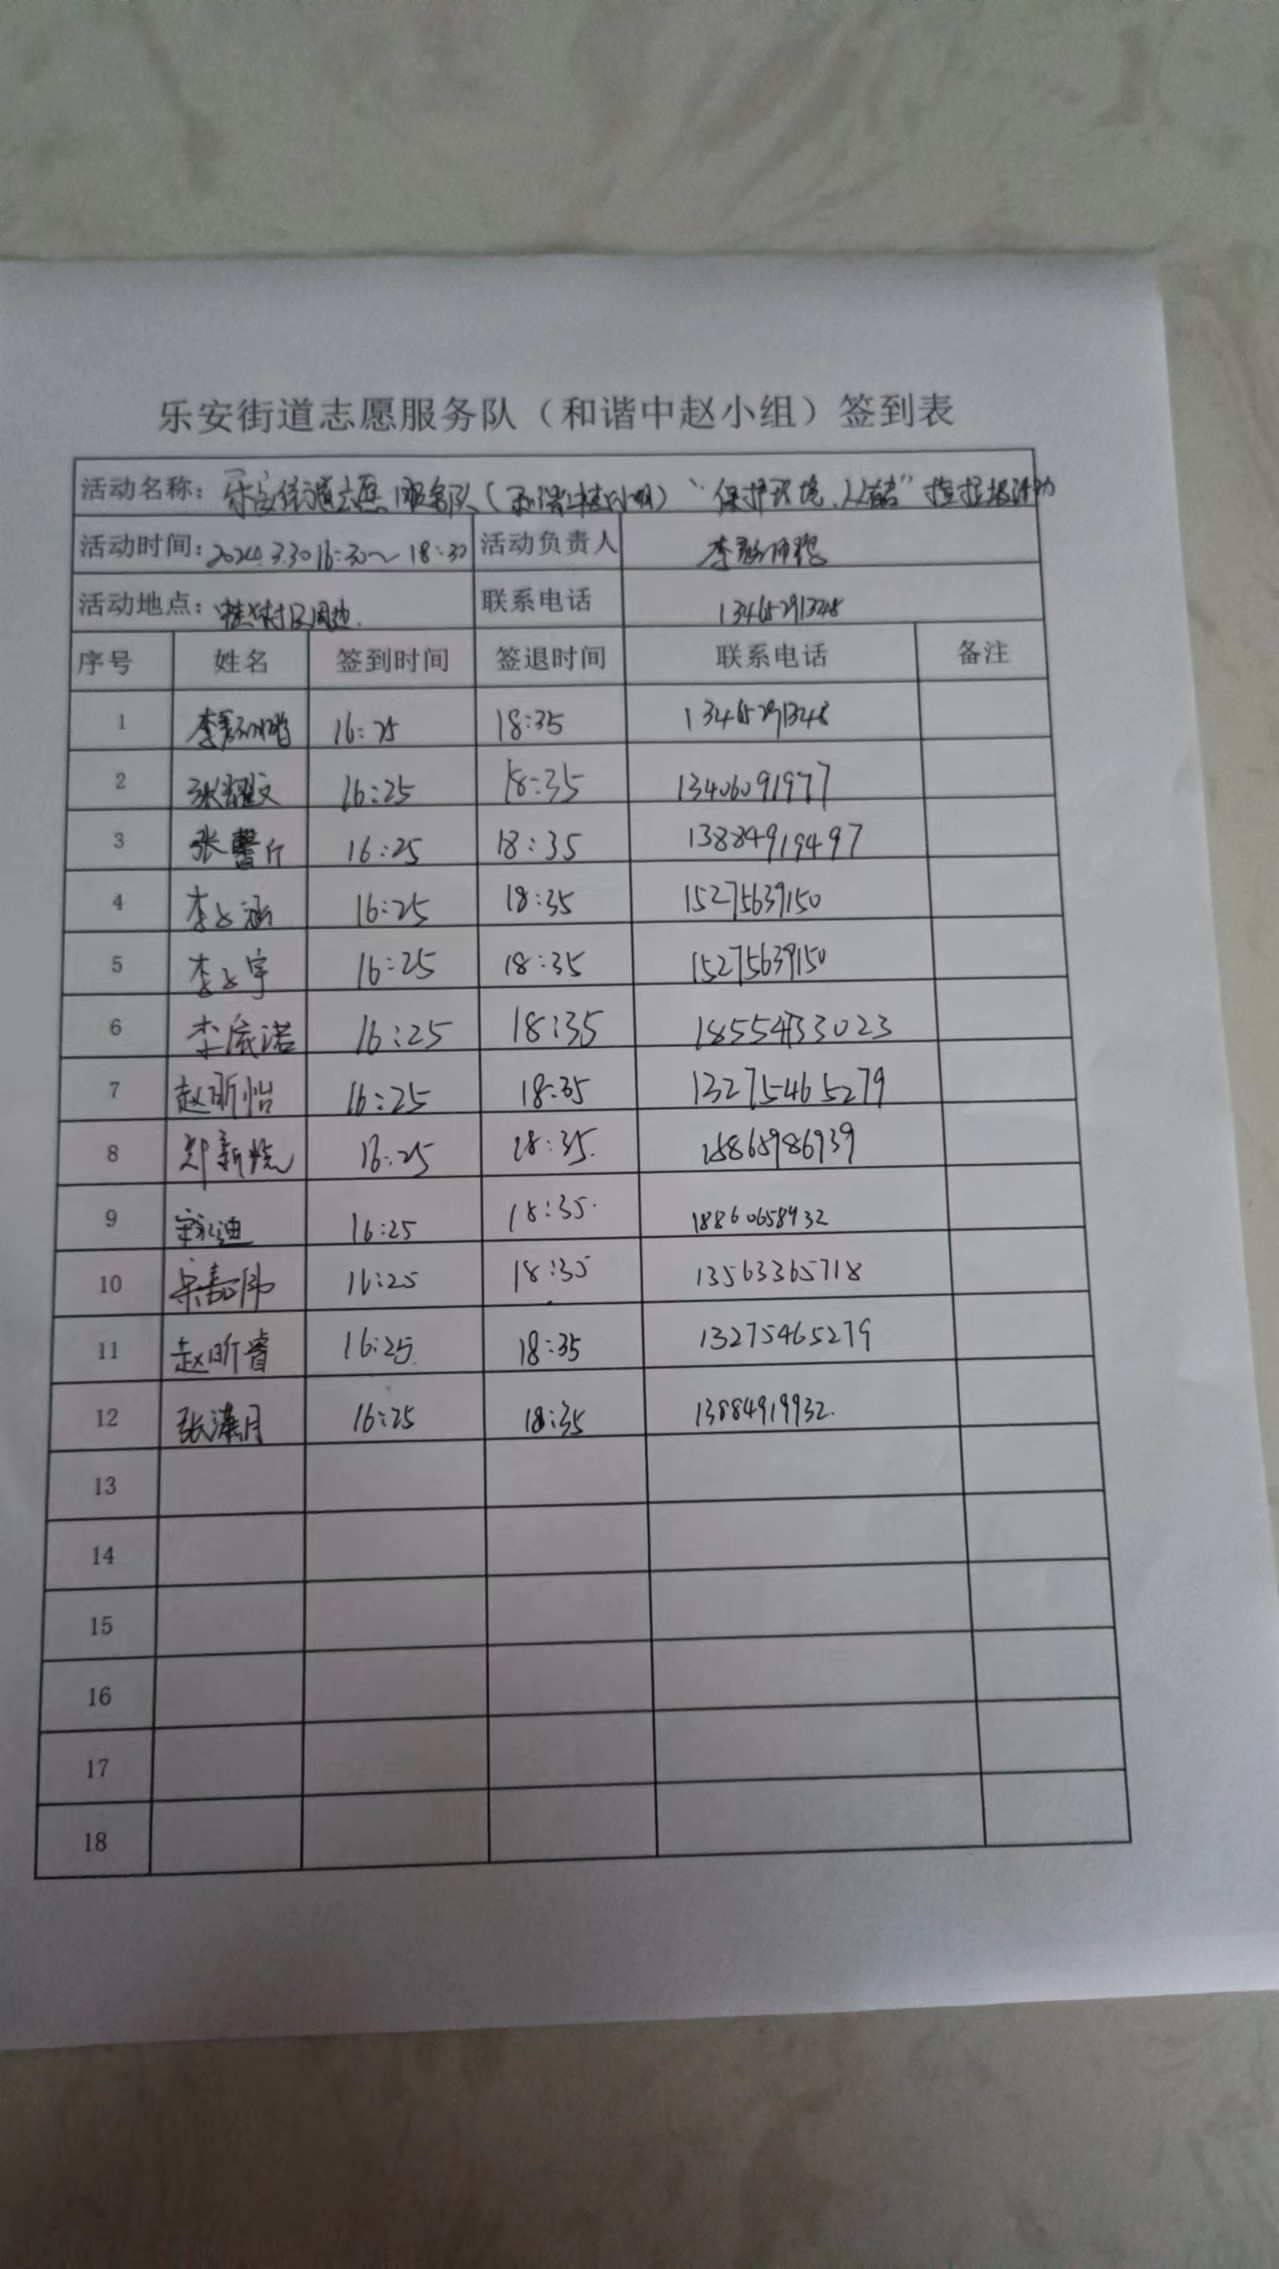 乐安街道志愿服务队（和谐中赵小组）签到表
活动名称：乐安街道志愿服务队（和谐中赵小组）“保护环境，人人有责”捡垃圾活动
活动时间：2024.3.30 16:30～18:30 活动负责人
活动地点：中赵社区周边. 联系电话 13465291348
序号 姓名 签到时间 签退时间 联系电话 备注
1 16:25 18:35 13465291348
2 张耀文 16:25 18:35 13406091977
3 张馨斤 16:25 18:35 13884919497
4 李文涵 16:25 18:35 15275639150
5 李文宇 16:25 18:35 15275639150
6 李依诺 16:25 18:35 18554733023
7 赵昕怡 16:25 18:35 13275465279
8 郑新悦 16:25 18:35. 18868986939
9 16:25 18:35. 18860658932
10 宋嘉伟 16:25 18:35 13563365718
11 赵昕睿 16:25. 18:35 13275465279
12 张潇月 16:25 18:35 13884919932.
13
14
15
16
17
18